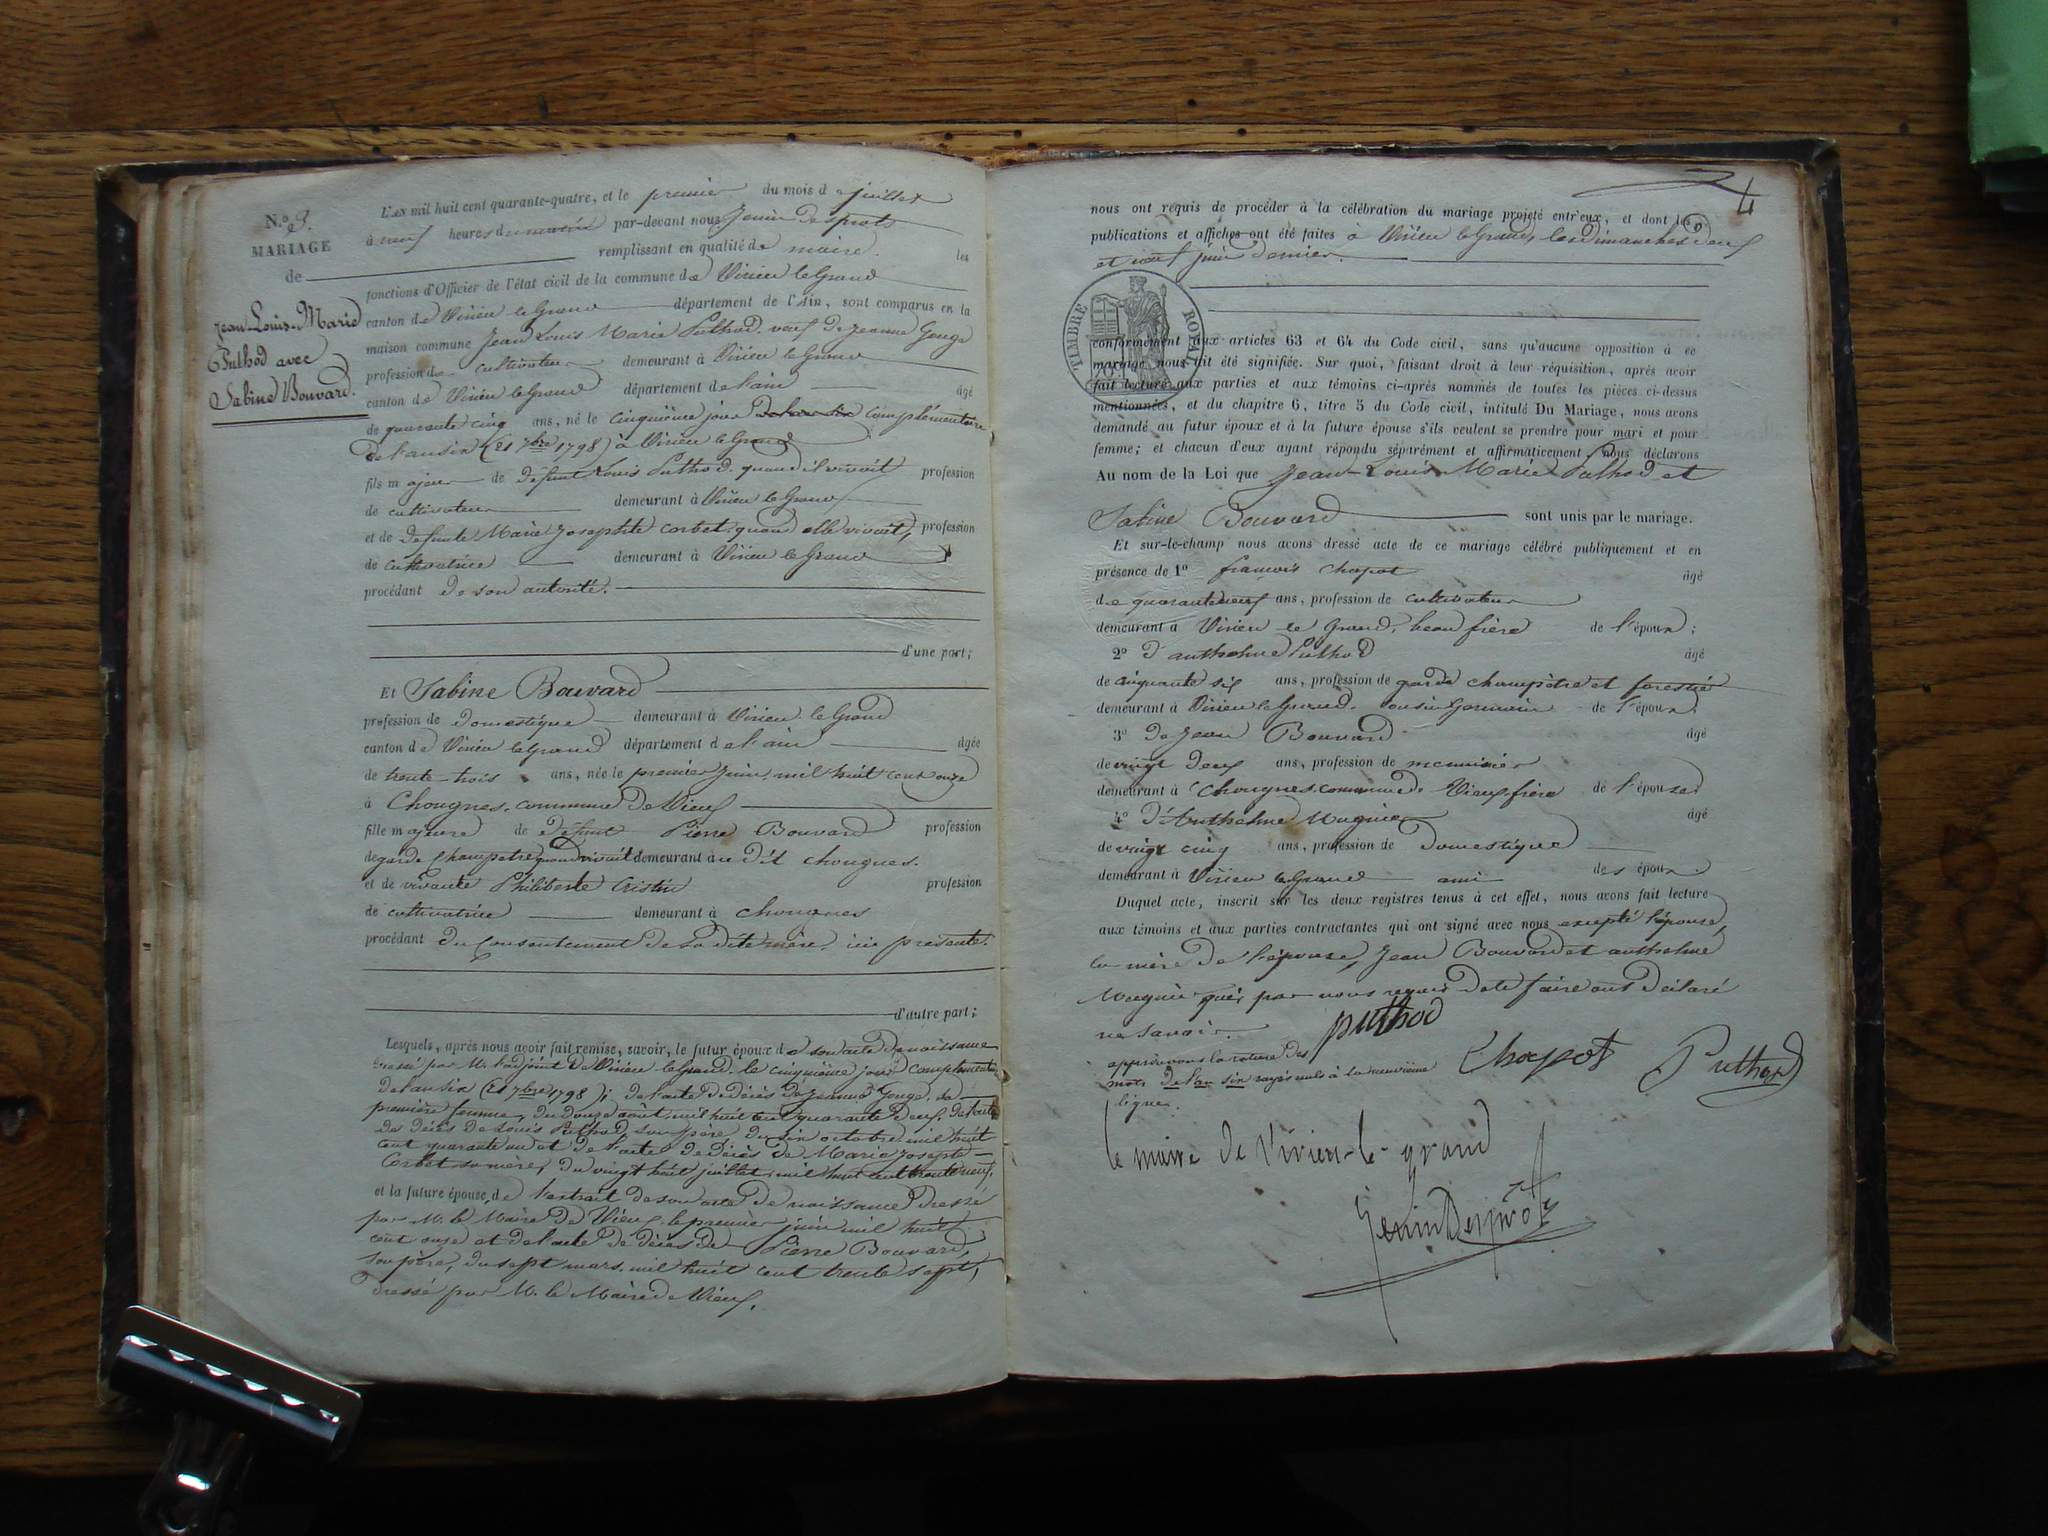 N.º 3.
MARIAGE
de
Jean-Louis-Marie
Puthod avec
Sabine Bouvard.
L'AN mil huit cent quarante-quatre, et le premier du mois de juillet
à neuf heures du matin par-devant nous Jenin Desprots
remplissant en qualité de maire. les
fonctions d'Officier de l'état civil de la commune de Virieu le Grand
canton de Virieu le Grand département de l'Ain, sont comparus en la
maison commune Jean Louis Marie Puthod. veuf de Jeanne Gouge
profession de cultivateur demeurant à Virieu le Grand
canton de Virieu le Grand département de l'ain âgé
de quarante cinq ans, né le cinquième jour de l'an six complémentaire
de l'an six (21 7bre 1798) à Virieu le Grand
fils majeur de défunt Louis Puthod. quand il vivait profession
de cultivateur demeurant à Virieu le Grand
et de défunte Marie Josephte Corbet, quand elle vivait, profession
de cultivatrice demeurant à Virieu le Grand
procédant de son autorité.
d'une part;
Et Sabine Bouvard
profession de domestique demeurant à Virieu le Grand
canton de Virieu le grand département de l'ain âgée
de trente-trois ans, née le premier Juin, mil huit cent onze
à Chougnes, commune de Vieu
fille majeure de défunt Pierre Bouvard profession
de garde champetre quand vivait demeurant au dit chougnes.
et de vivante Philiberte Cristin profession
de cultivatrice demeurant à chougnes
procédant du consentement de sa dite mère, ici présente.
d'autre part;
Lesquels, après nous avoir fait remise, savoir, le futur époux de son acte de naissance
dressé par M. l'adjoint de Virieu le Grand. le cinquième jour complémentaire
de l'an six (21 7bre 1798); de l'acte de décès de Jeanne Gouge, sa
première femme, du douze août, mil huit cent quarante deux, de l'acte
de décès de Louis Puthod, son père, du six octobre, mil huit
cent quarante un et de l'acte de décès de Marie Josephe
Corbet sa mère, du vingt huit juillet, mil huit cent trente neuf.
et la future épouse, de l'extrait de son acte de naissance dressé
par M. le Maire de Vieu, le premier juin mil huit
cent onze et de l'acte de décès de Pierre Bouvard,
son père, du sept mars, mil huit cent trente sept,
dressé par M. le Maire de Vieu.
4
nous ont requis de procéder à la célébration du mariage projeté entr'eux, et dont les
publications et affiches ont été faites à Virieu le Grand, les dimanches deux
et neuf juin dernier.
TIMBRE ROYAL
conformément aux articles 63 et 64 du Code civil, sans qu'aucune opposition à ce
mariage nous ait été signifiée. Sur quoi, faisant droit à leur réquisition, après avoir
fait lecture aux parties et aux témoins ci-après nommés de toutes les pièces ci-dessus
mentionnées, et du chapitre 6, titre 5 du Code civil, intitulé Du Mariage, nous avons
demandé au futur époux et à la future épouse s'ils veulent se prendre pour mari et pour
femme; et chacun d'eux ayant répondu séparément et affirmativement, nous déclarons
Au nom de la Loi que Jean-Louis Marie Puthod et
Sabine Bouvard sont unis par le mariage.
Et sur-le-champ nous avons dressé acte de ce mariage célébré publiquement et en
présence de 1º francois Chapot âgé
de quarante neuf ans, profession de cultivateur
demeurant à Virieu le Grand, beau frère de l'époux;
2º d'anthelme Puthod âgé
de cinquante six ans, profession de garde champêtre et forestié
demeurant à Virieu le Grand. cousin Germain de l'époux
3º de Jean Bouvard âgé
de vingt deux ans, profession de menuisier
demeurant à Chougnes, commune de Vieu, frère de l'épouse
4º d'Anthelme Mugnier âgé
de vingt cinq ans, profession de domestique
demeurant à Virieu le Grand ami des époux
Duquel acte, inscrit sur les deux registres tenus à cet effet, nous avons fait lecture
aux témoins et aux parties contractantes qui ont signé avec nous excepté l'épouse,
la mère de l'épouse, Jean Bouvard et anthelme
Mugnier qui, par nous requis de le faire ont déclaré
ne savoir.
approuvons la rature des
mots de l'an six rayés nuls à la neuvième
ligne.
puthod
Chapot
Puthod
le maire de Virieu-le-grand
Jenin Desprots